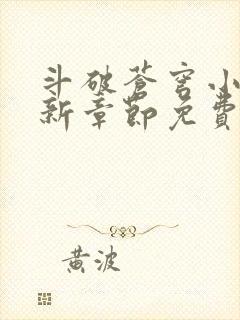 斗破苍穹小
新章節免費
黄波